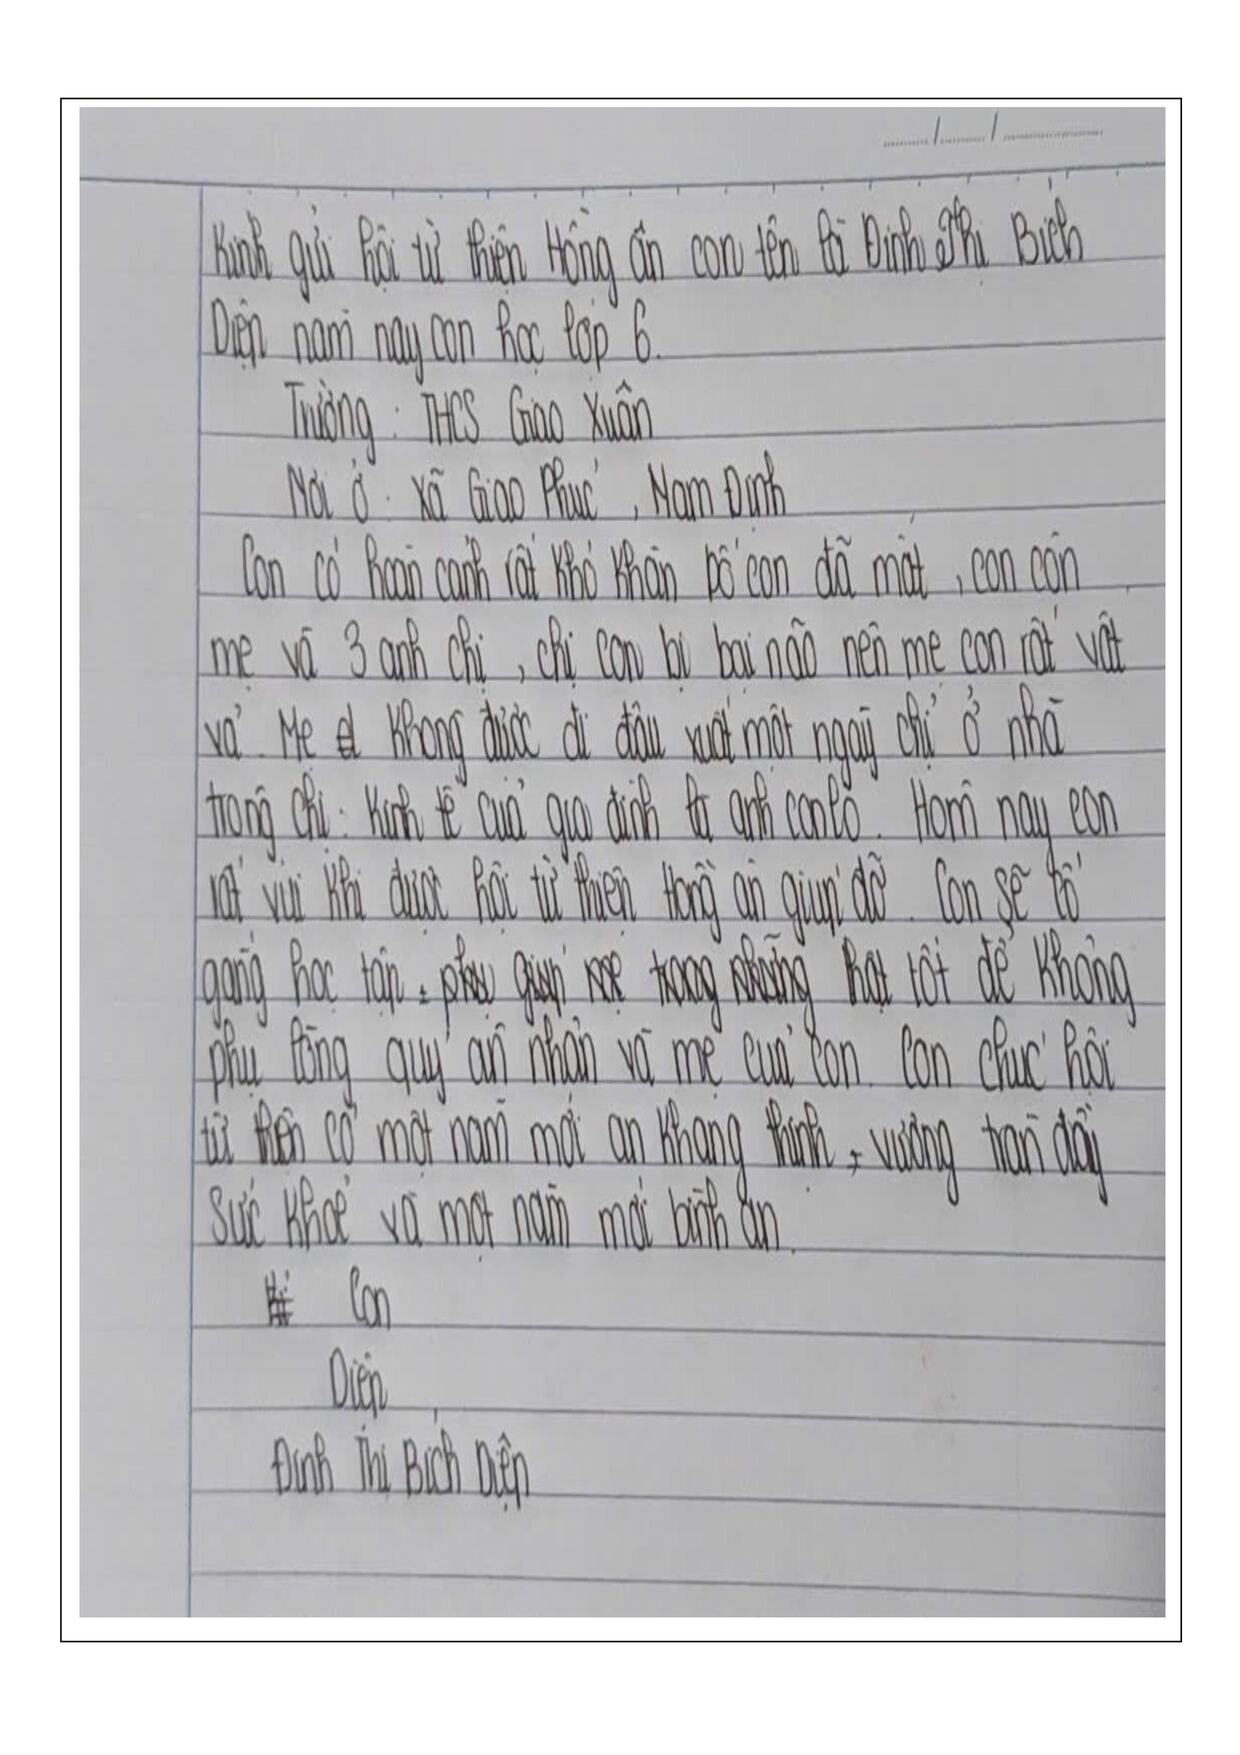 ...../...../............
Kính gửi hội từ thiện Hồng ấn con tên là Đinh Thị Bích
Diện năm nay con học lớp 6.
Trường : THCS Giao Xuân
Nơi ở : Xã Giao Phúc , Nam Định
Con có hoàn cảnh rất khó khăn bố con đã mất , con còn
mẹ và 3 anh chị , chị con bị bại não nên mẹ con rất vất
vả . Mẹ không được đi đâu xuất một ngày chỉ ở nhà
trong chị . Kinh tế của gia đình là anh con lo . Hôm nay con
rất vui khi được hội từ thiện Hồng ân giúp đỡ . Con sẽ cố
gắng học tập , phụ giúp mẹ trong những hạt tốt để không
phụ lòng quý ân nhân và mẹ của con . Con chúc hội
từ thiện có một năm mới an khang thịnh , vượng tràn đầy
sức khoẻ và một năm mới bình an .
Con
Diện
Đinh Thị Bích Diện